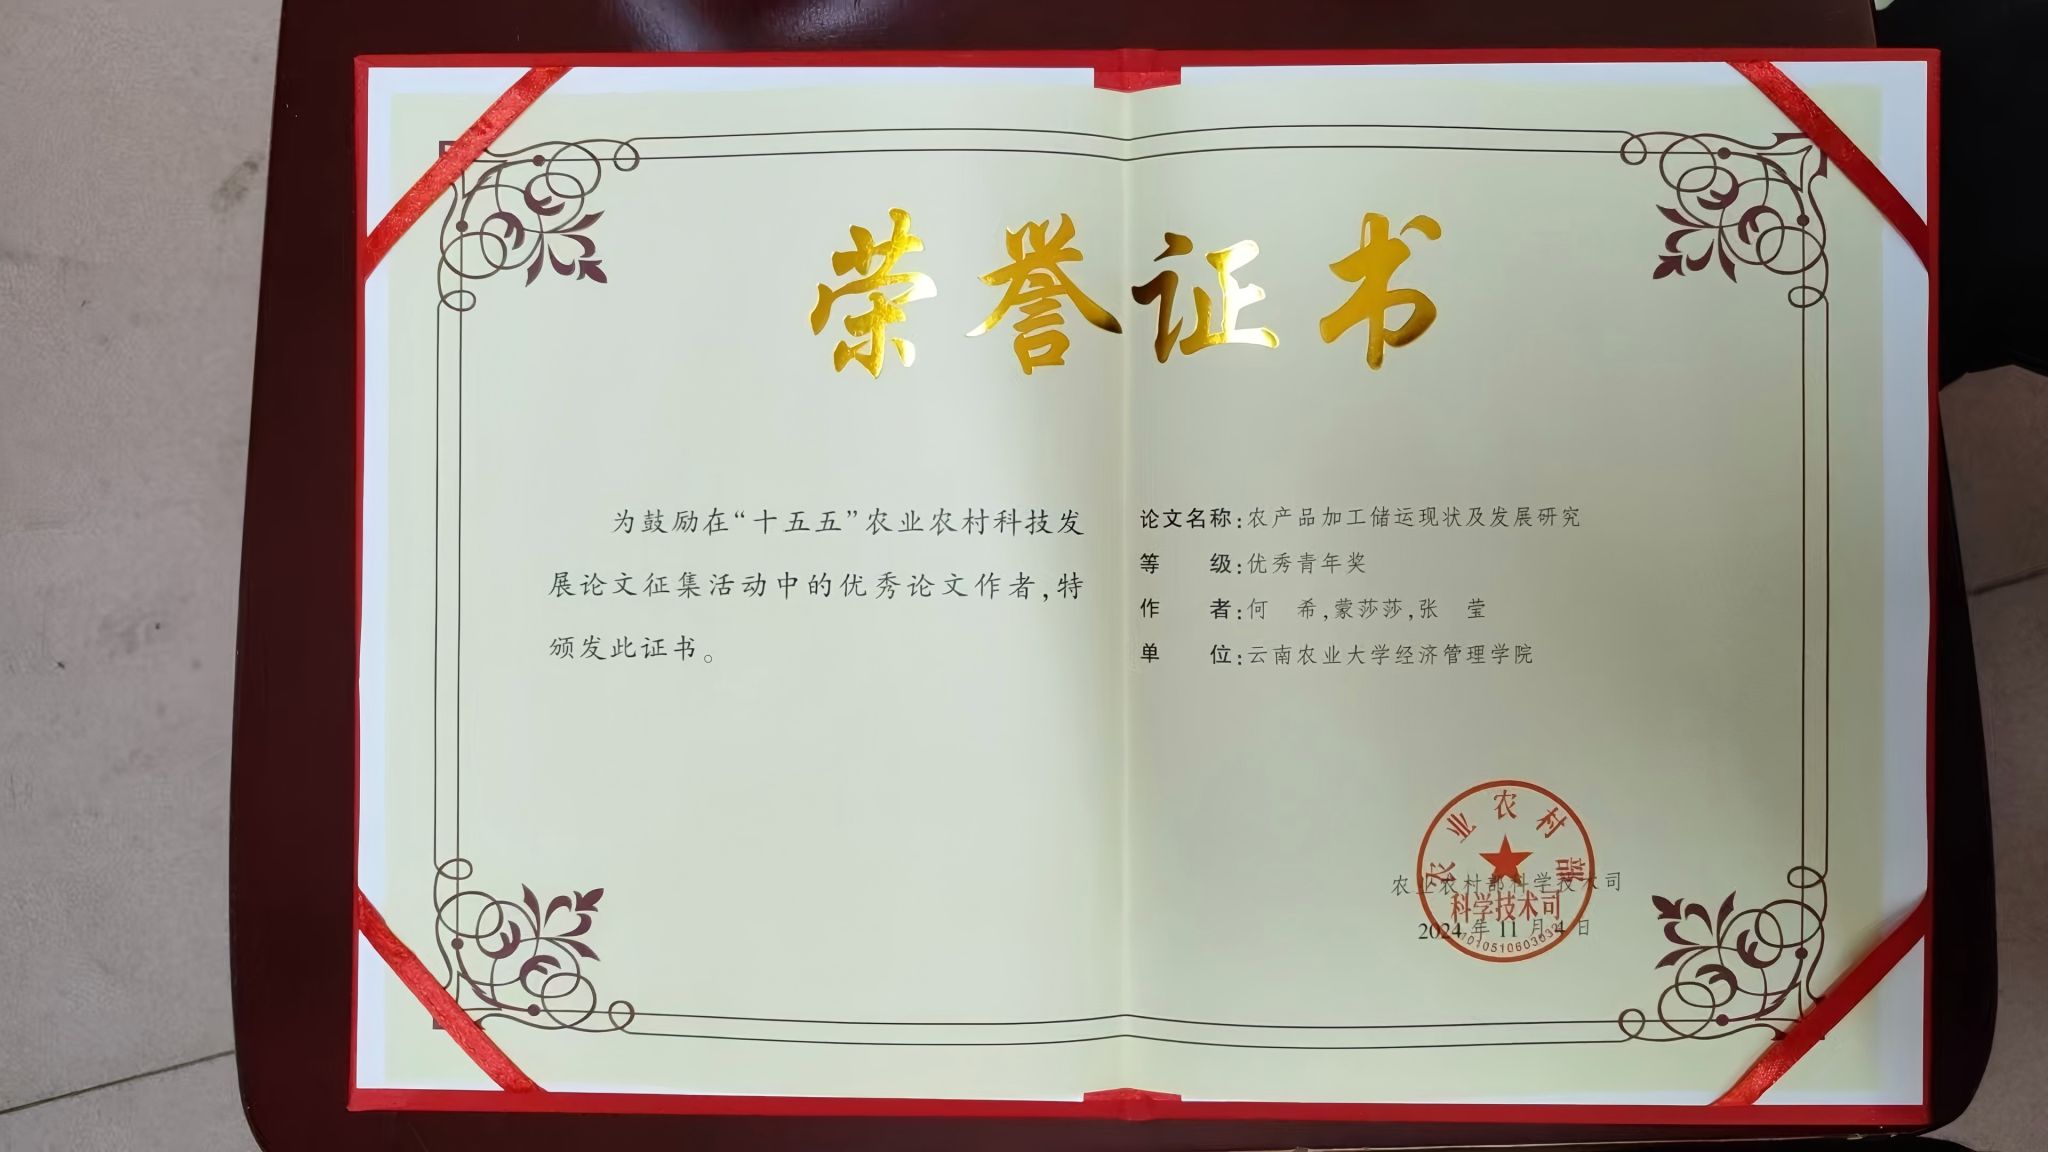 荣誉证书
为鼓励在“十五五”农业农村科技发
展论文征集活动中的优秀论文作者，特
颁发此证书。
论文名称：农产品加工储运现状及发展研究
等　　级：优秀青年奖
作　　者：何　希，蒙莎莎，张　莹
单　　位：云南农业大学经济管理学院
农业农村部
科学技术司
农业农村部科学技术司
2024年11月4日